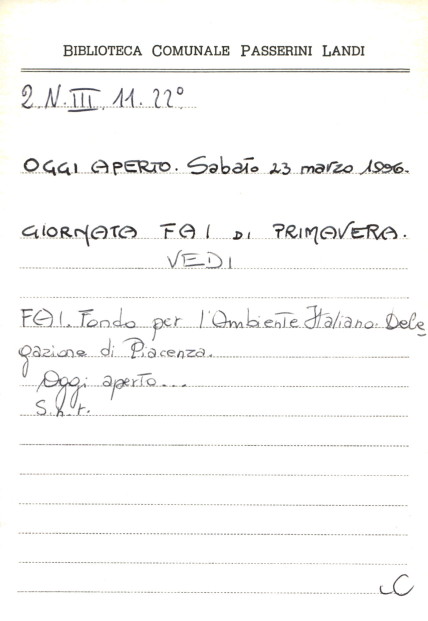 BIBLIOTECA COMUNALE PASSERINI LANDI
2.N.III.11.22°
OGGI APERTO. Sabato 23 marzo 1996.
GIORNATA FAI DI PRIMAVERA.
VEDI
FAI. Fondo per l'Ambiente Italiano. Dele
gazione di Piacenza.
Oggi aperto...
S.n.t.
C